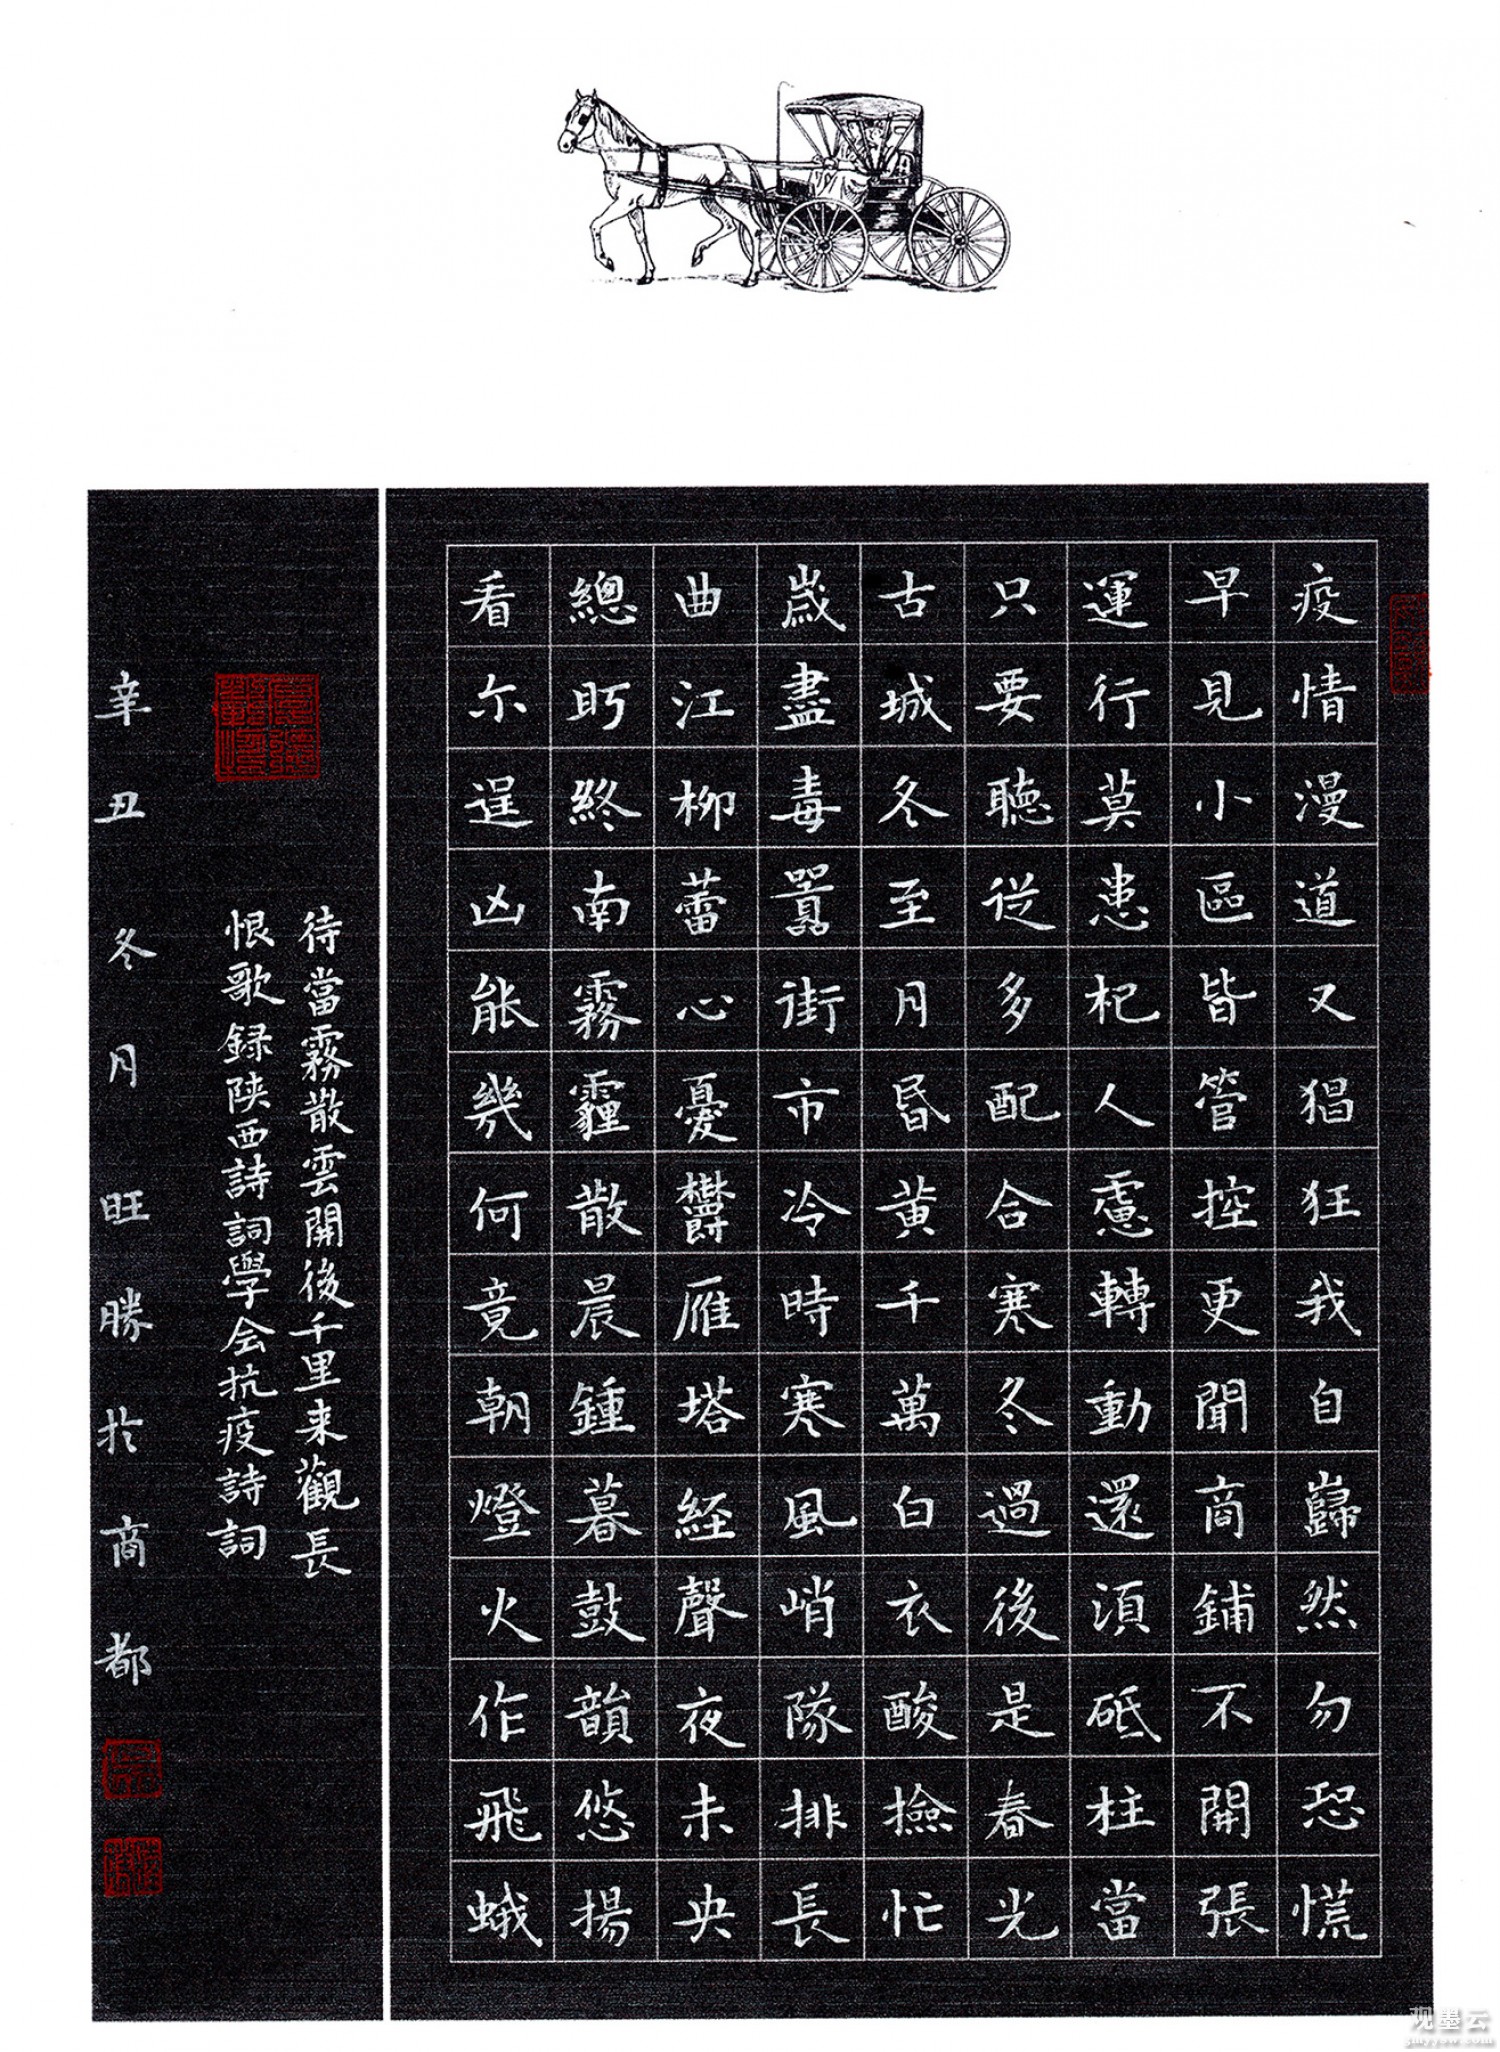 疫情漫道又猖狂我自巋然勿恐慌
早見小區皆管控更聞商鋪不開張
運行莫患杞人慮轉動還須砥柱當
只要聽從多配合寒冬過後是春光
古城冬至月昏黄千萬白衣酸撿忙
嵗盡毒囂街市冷時寒風峭隊排長
曲江柳蕾心憂鬱雁塔経聲夜未央
總盯終南霧霾散晨鍾暮鼓韻悠揚
看尔逞凶能幾何竟朝燈火作飛蛾
待當霧散雲開後千里来觀長
恨歌録陕西詩詞學会抗疫詩詞
辛丑冬月旺勝於商都
观墨云
gmyysw.com